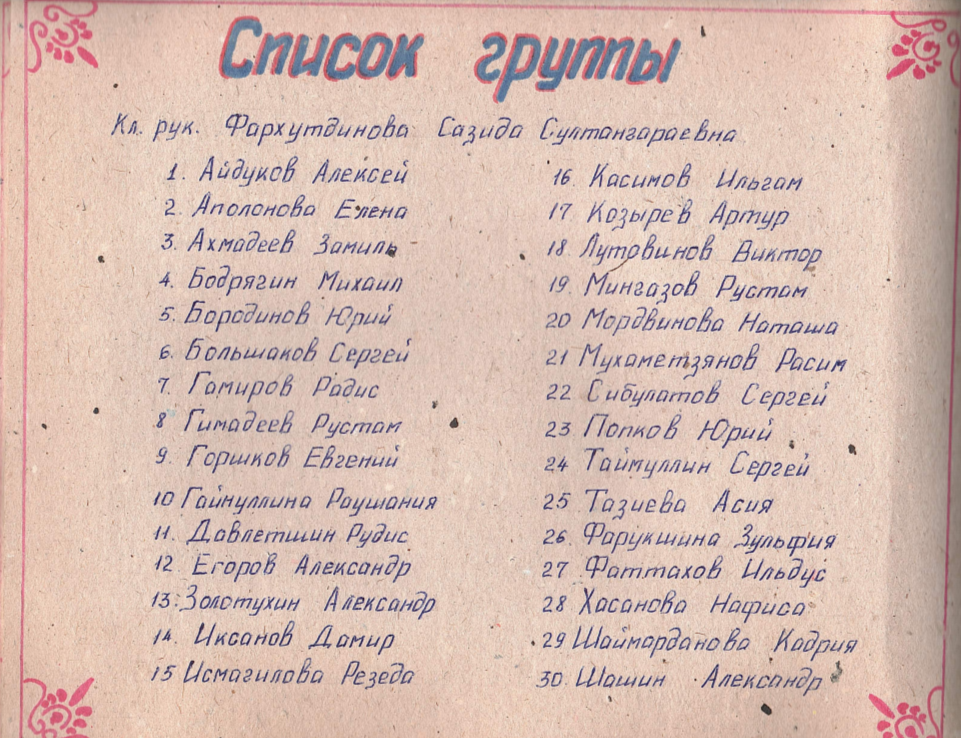 Список группы
Кл. рук. Фархутдинова Сазида Султангараевна
1. Айдуков Алексей
2. Аполонова Елена
3. Ахмадеев Замиль
4. Бодрягин Михаил
5. Бородинов Юрий
6. Большаков Сергей
7. Гамиров Радис
8 Гимадеев Рустам
9. Горшков Евгений
10 Гайнуллина Раушания
11. Давлетшин Рудис
12. Егоров Александр
13. Золотухин Александр
14. Иксанов Дамир
15 Исмагилова Резеда
16. Касимов Ильгам
17. Козырев Артур
18 Лутовинов Виктор
19. Мингазов Рустам
20 Мордвинова Наташа
21 Мухаметзянов Расим
22 Сибулатов Сергей
23 Попков Юрий
24 Таймуллин Сергей
25 Тазиева Асия
26. Фарукшина Зульфия
27 Фаттахов Ильдус
28 Хасанова Нафиса
29 Шаймарданова Кадрия
30. Шашин Александр